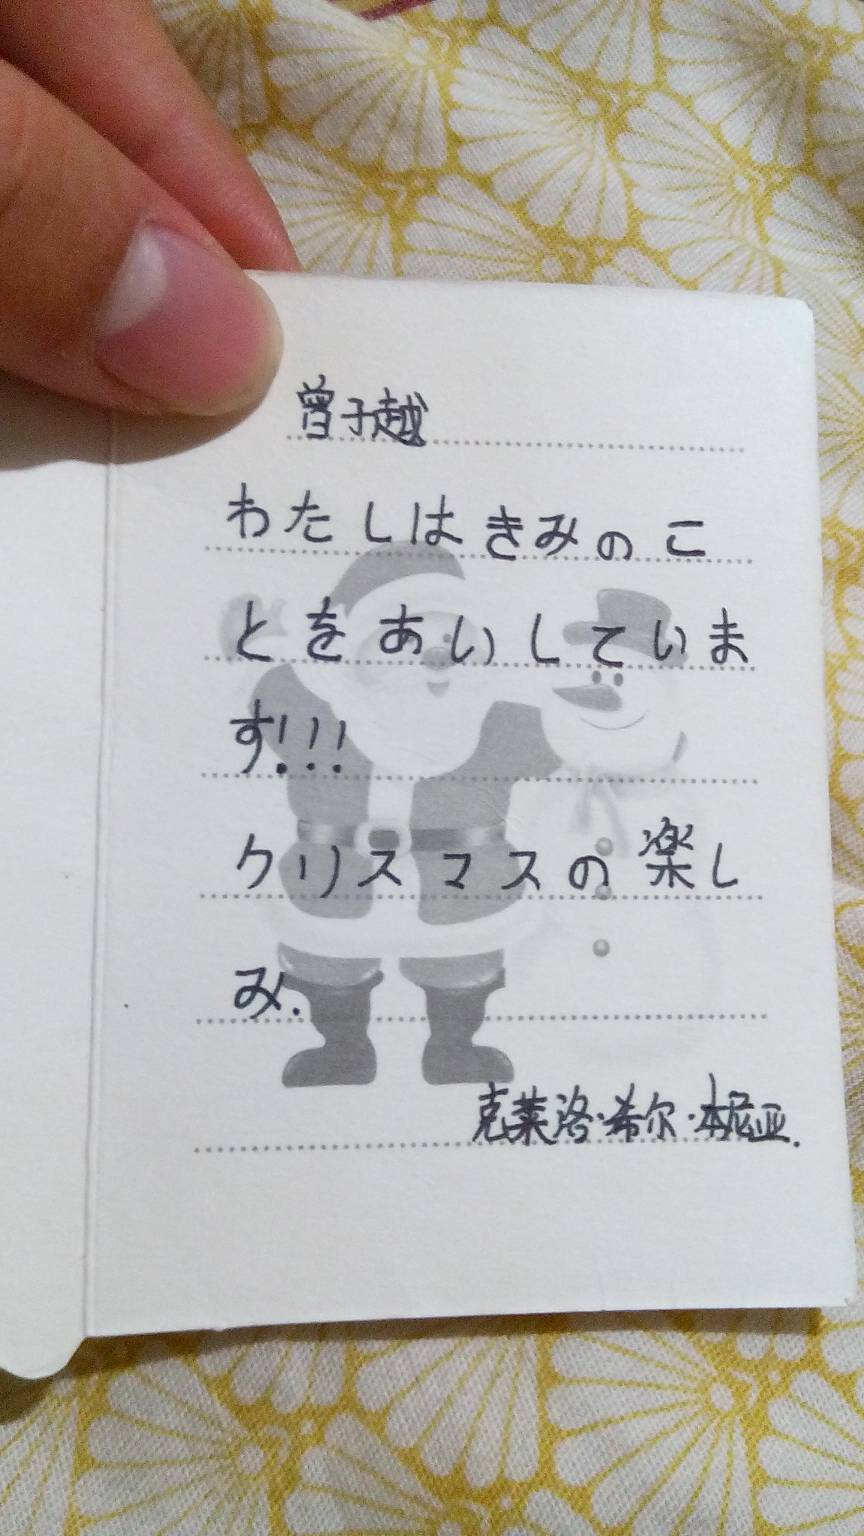 曾子越
わたしはきみのこ
とをあいしていま
す!!!
クリスマスの楽し
み.
克莱洛·希尔·本尼亚.